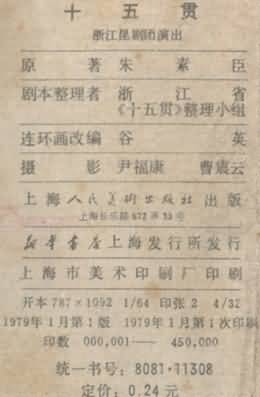 十五贯
浙江昆剧团演出
原著 朱素臣
剧本整理者 浙江省
《十五贯》整理小组
连环画改编 谷英
摄影 尹福康 曹震云
上海人民美术出版社出版
上海长乐路672弄33号
新华书店上海发行所发行
上海市美术印刷厂印刷
开本787×1092 1/64 印张2 4/32
1979年1月第1版 1979年1月第1次印刷
印数 000,001—450,000
统一书号：8081·11308
定价：0.24元